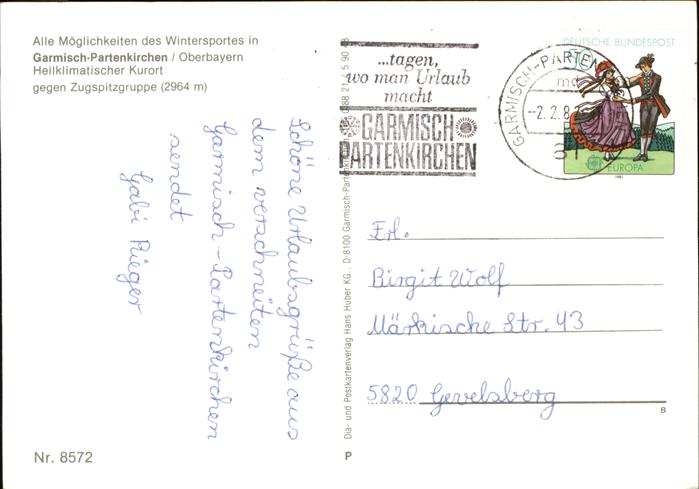 Alle Möglichkeiten des Wintersportes in
Garmisch-Partenkirchen / Oberbayern
Heilklimatischer Kurort
gegen Zugspitzgruppe (2964 m)
Schöne Urlaubsgrüße aus
dem verschneiten
Garmisch-Partenkirchen
sendet
Gabi Rieger
Nr. 8572
Dia- und Postkartenverlag Hans Huber KG., D-8100 Garmisch-Partenkirchen
P
...tagen,
wo man Urlaub
macht
GARMISCH
PARTENKIRCHEN
GARMISCH-PARTEN
-2.2.8
DEUTSCHE BUNDESPOST
EUROPA
1981
Frl.
Birgit Wolf
Märkische Str. 43
5820 Gevelsberg
B